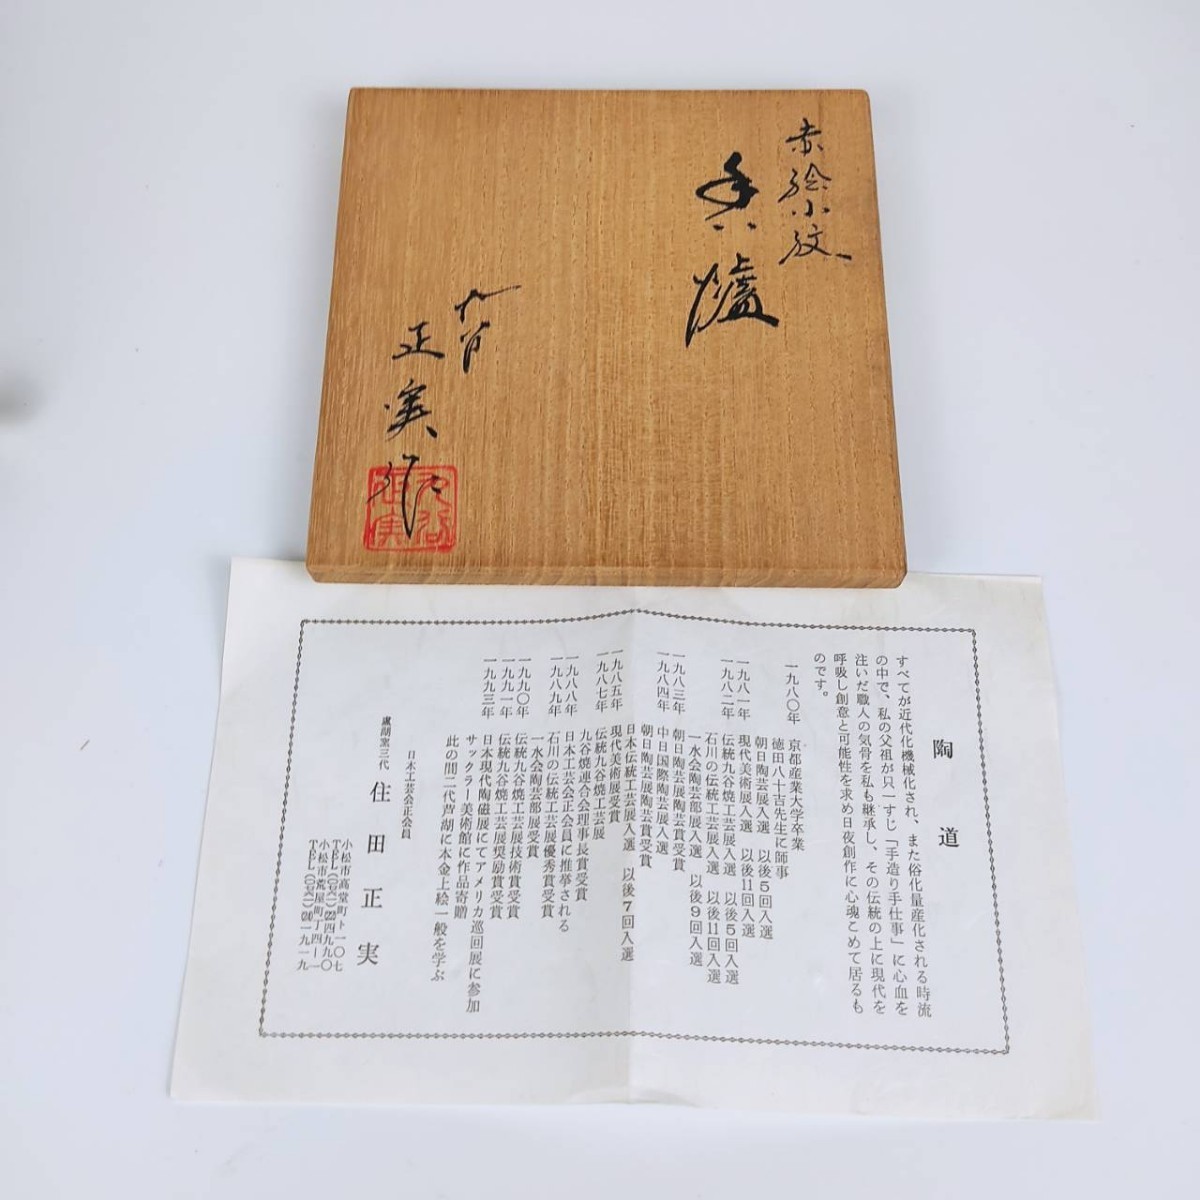 赤絵小紋
香爐
九谷
正実作
九谷
正実
陶道
すべてが近代化機械化され、また俗化量産化される時流
の中で、私の父祖が只一すじ「手造り手仕事」に心血を
注いだ職人の気骨を私も継承し、その伝統の上に現代を
呼吸し創意と可能性を求め日夜創作に心魂こめて居るも
のです。
一九八〇年 京都産業大学卒業
徳田八十吉先生に師事
朝日陶芸展入選 以後5回入選
一九八一年 現代美術展入選 以後11回入選
一九八二年 伝統九谷焼工芸展入選 以後5回入選
石川の伝統工芸展入選 以後11回入選
一水会陶芸部展入選 以後9回入選
一九八三年 朝日陶芸展陶芸賞受賞
一九八四年 中日国際陶芸展入選
朝日陶芸展陶芸賞受賞
日本伝統工芸展入選 以後7回入選
一九八五年 現代美術展受賞
一九八七年 伝統九谷焼工芸展
九谷焼連合会理事長賞受賞
一九八八年 日本工芸会正会員に推挙される
一九八九年 石川の伝統工芸展優秀賞受賞
一水会陶芸部展受賞
一九九〇年 伝統九谷焼工芸展技術賞受賞
一九九一年 伝統九谷焼工芸展奨励賞受賞
一九九三年 日本現代陶磁展にてアメリカ巡回展に参加
サックラー美術館に作品寄贈
此の間二代芦湖に本金上絵一般を学ぶ
日本工芸会正会員
盧湖窯三代 住田正実
小松市高堂町ト一〇七
TEL(〇七六一)22四九九〇
小松市荒屋町丁四ー一
TEL(〇七六一)24一九一九